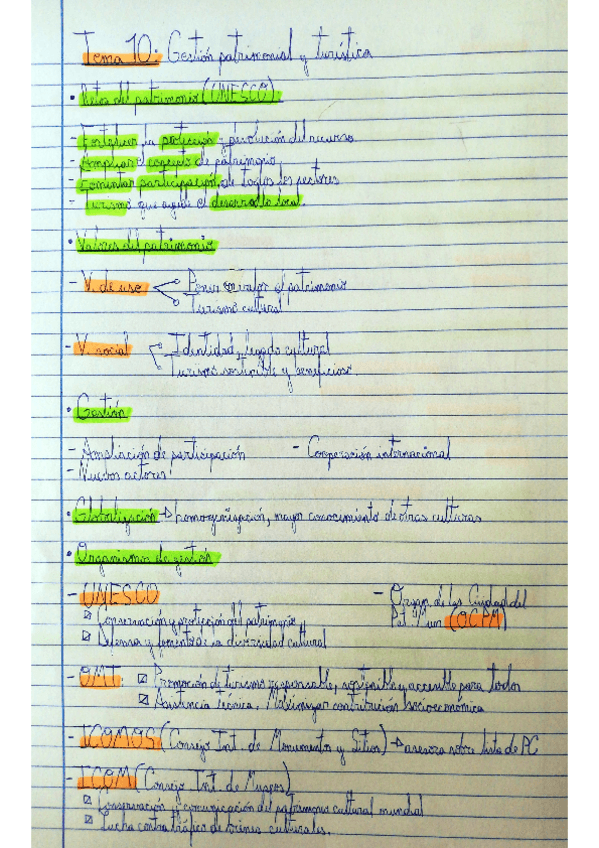 Tema 10: Gestión patrimonial y turística
• Retos del patrimonio (UNESCO)
- Fortalecer la protección y devolución del recurso
- Ampliar el concepto de patrimonio
- Fomentar participación de todos los sectores
- Turismo que ayude el desarrollo local.
• Valores del patrimonio
- V. de uso
Poner en valor el patrimonio
Turismo cultural
- V. social
Identidad, legado cultural
Turismo sostenible y beneficioso.
• Gestión
- Ampliación de participación - Cooperación internacional
- Nuevos actores
• Globalización → homogeneización, mayor conocimiento de otras culturas
• Organismos de gestión
- UNESCO
☑ Conservación y protección del patrimonio
☑ Defensa y fomento de la diversidad cultural
- Organ. de las Ciudad. del
Pat. Mun. (OCPM)
- OMT ☑ Promoción de turismo responsable, sostenible y accesible para todos
☑ Asistencia técnica. Maximizar contribución socioeconómica
- ICOMOS (Consejo Int. de Monumentos y Sitios) → asesora sobre lista de PC
- ICOM (Consejo Int. de Museos)
☑ Conservación y comunicación del patrimonio cultural mundial
☑ Lucha contra tráfico de bienes culturales.